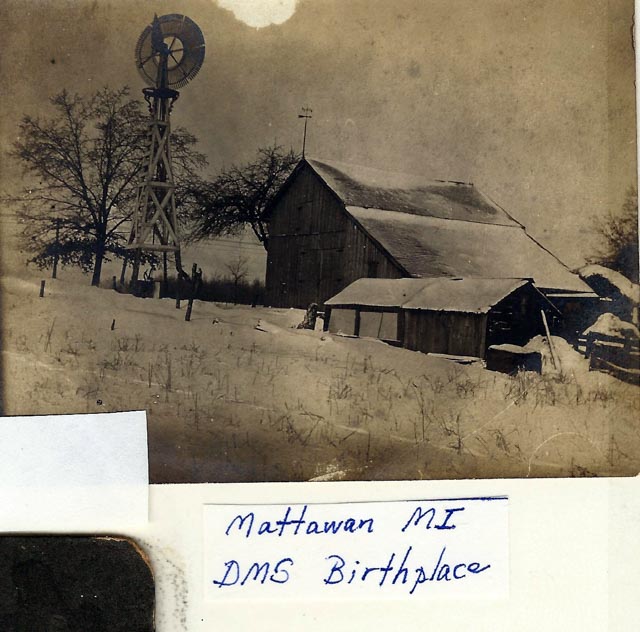 Mattawan MI
DMS Birthplace